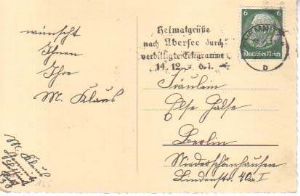 wünscht
Ihnen
Ihre
M. Klaus
Heimatgrüße
nach Übersee durch
verbilligte Telegramme
14.12. - 6.1.
6
Deutsches Reich
b
Fräulein
Else
Berlin
Niederschönhausen
Lindenstr. 40a I
M. Klaus